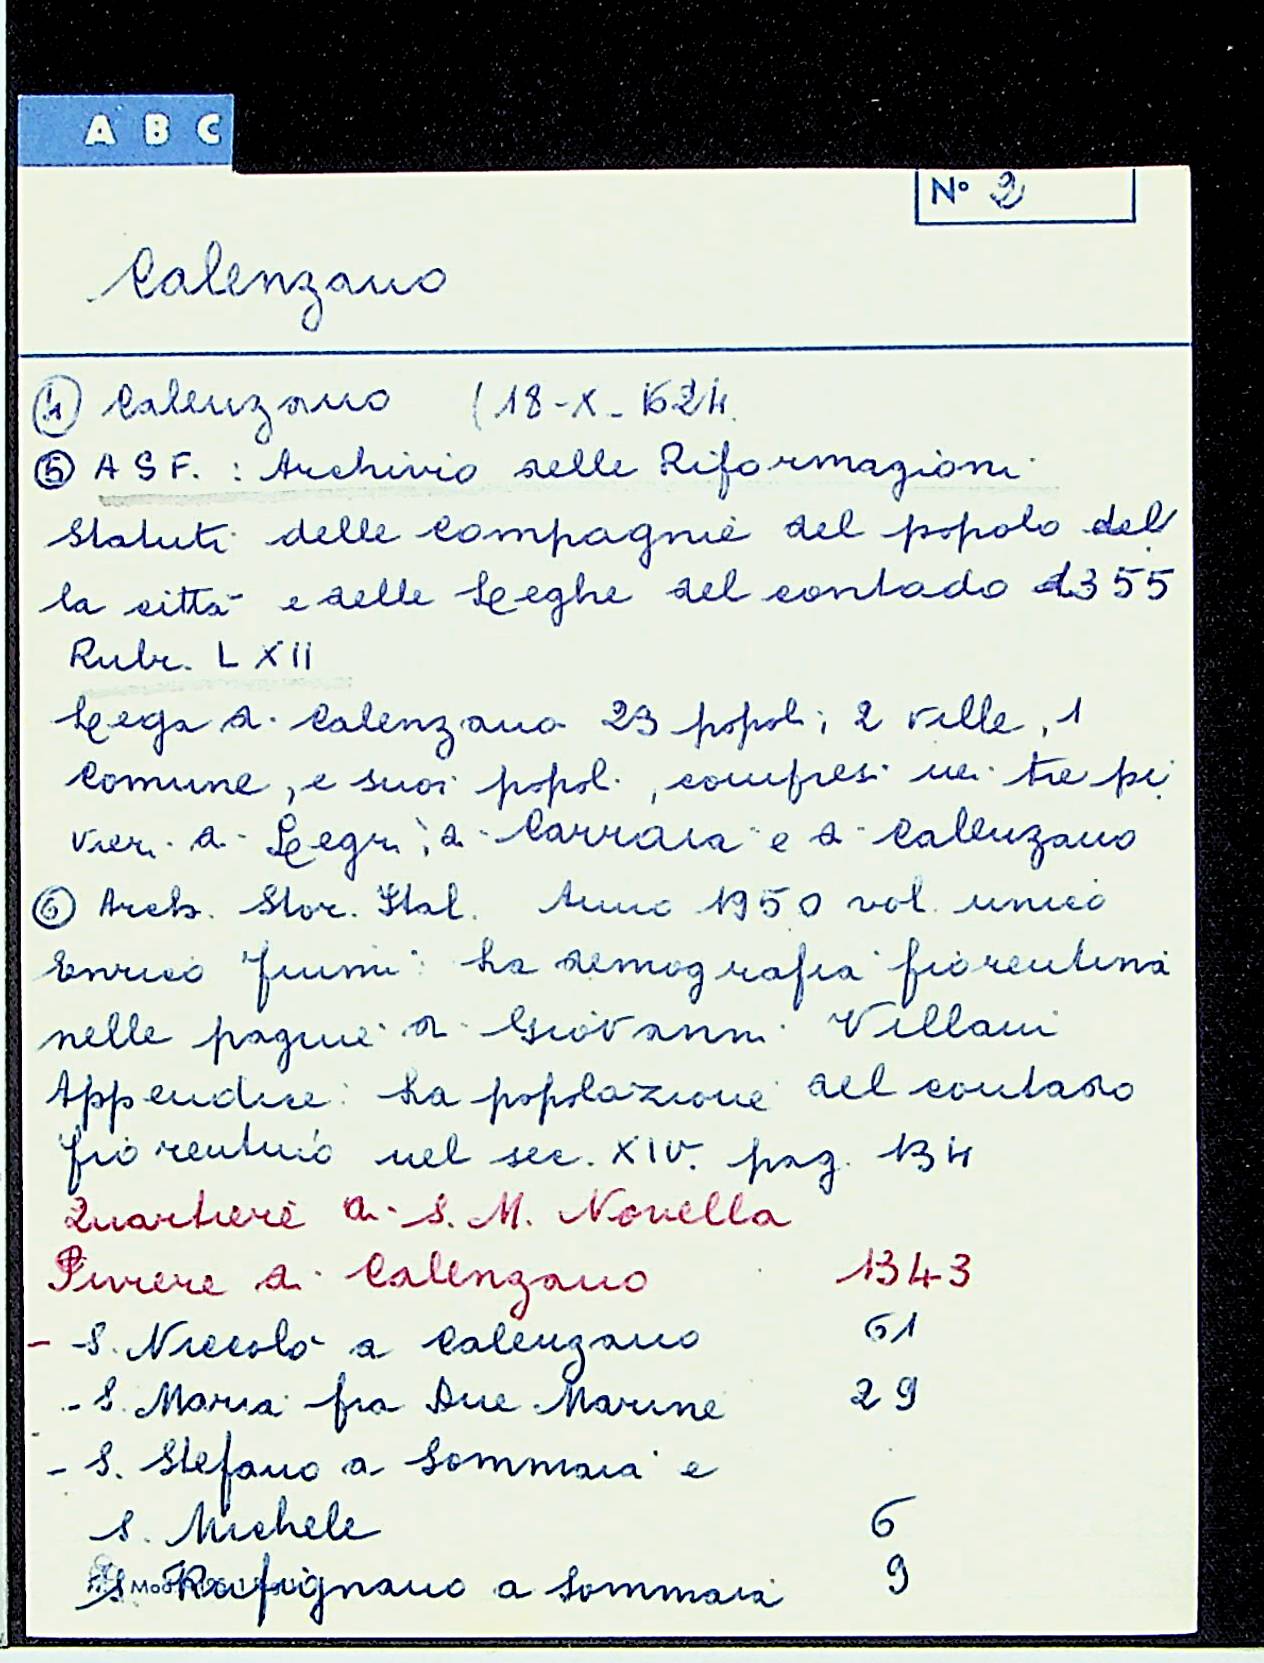 A B C
N° 2
Calenzano
④ Calenzano (18-X-1624
⑤ A S F. : Archivio delle Riformagioni
Statuti delle compagnie del popolo del
la città e delle Leghe del contado 1355
Rubr. LXII
Lega di Calenzano 23 popoli, 2 ville, 1
Comune, e suoi popoli, compresi nei tre pi
vieri di Legri, di Carraia e di Calenzano
⑥ Arch. Stor. Ital. Anno 1950 vol. unico
Enrico Fiumi: La demografia fiorentina
nelle pagine di Giovanni Villani
Appendice: La popolazione del contado
fiorentino nel sec. XIV. pag. 134
Quartiere di S. M. Novella
Piviere di Calenzano 1343
- S. Niccolò a Calenzano 61
- S. Maria fra Due Marine 29
- S. Stefano a Sommaia e
S. Michele 6
S. Rufignano a Sommaia 9